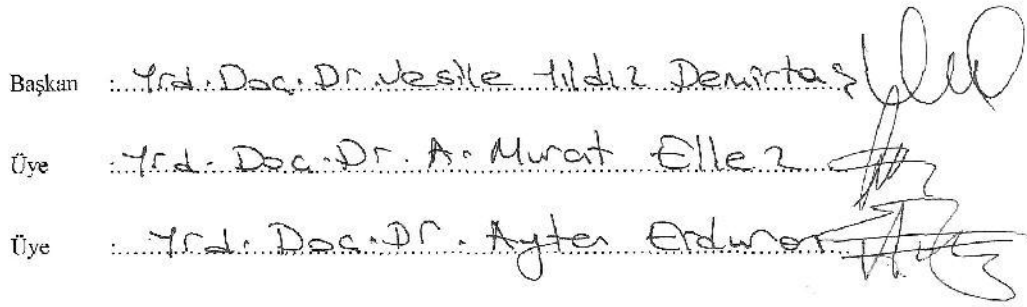 Başkan : Yrd. Doç. Dr. Vesile Yıldız Demirtaş
Üye : Yrd. Doç. Dr. A. Murat Ellez
Üye : Yrd. Doç. Dr. Ayten